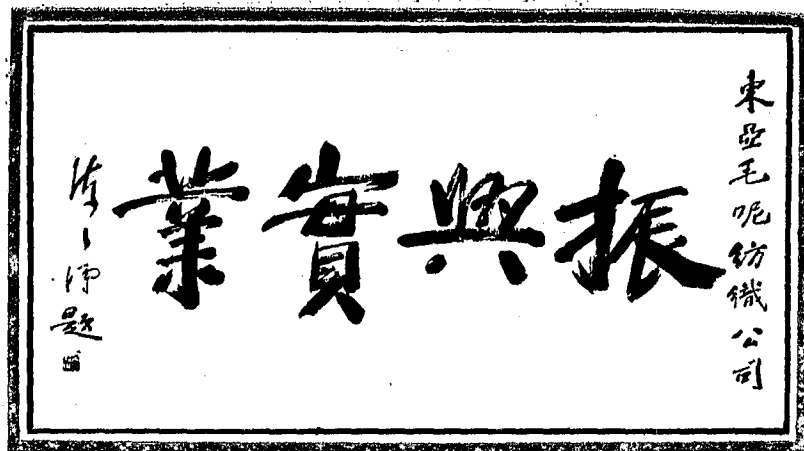 東亞毛呢紡織公司
振興實業
陳公博題